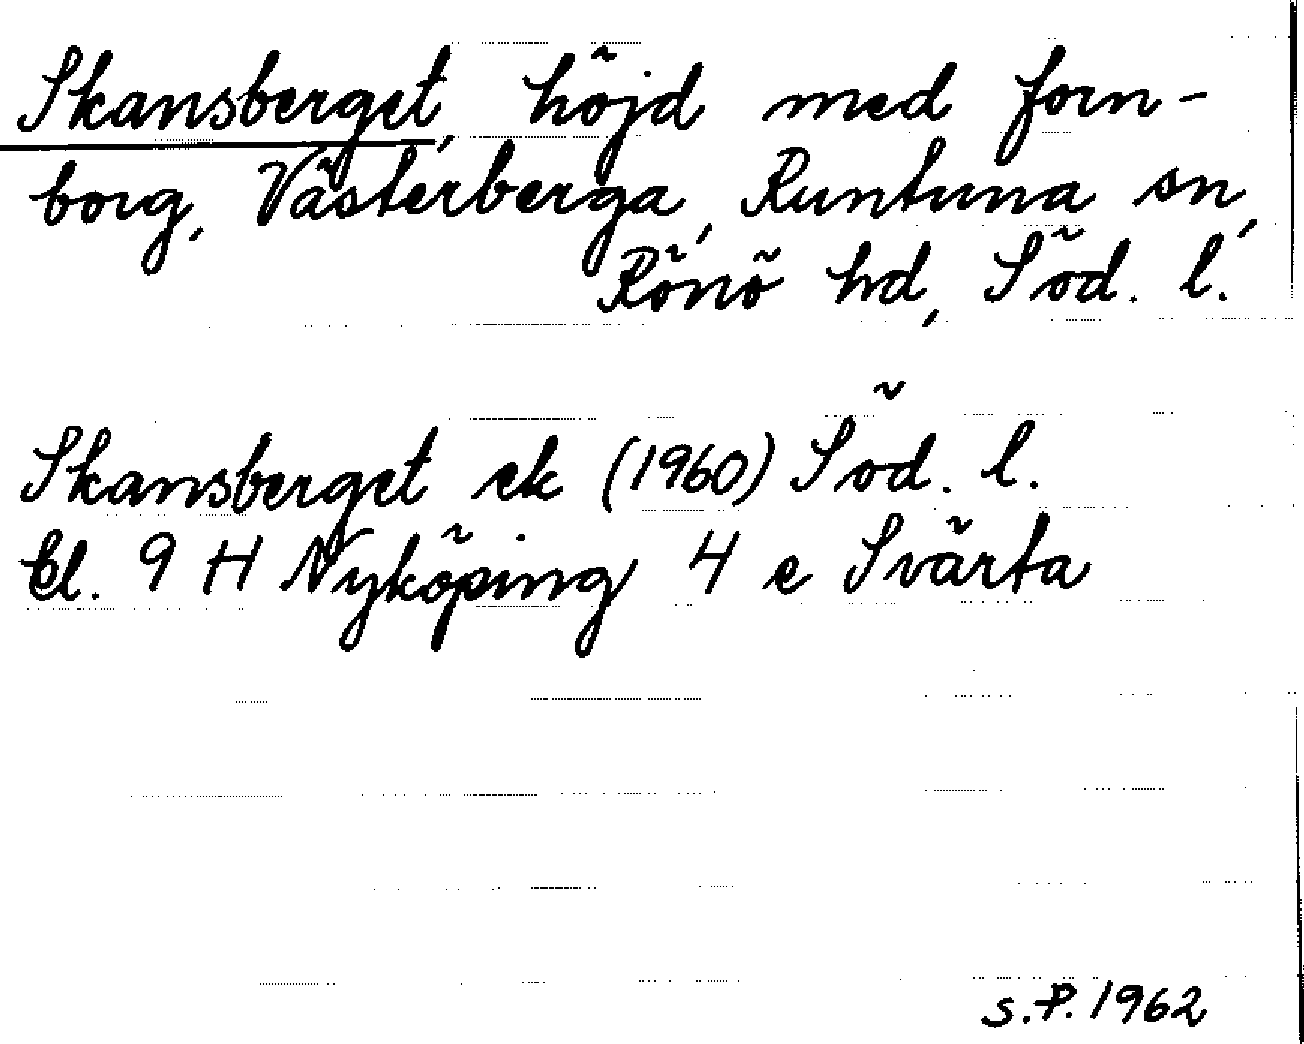 Skansberget, höjd med forn-
borg, Västerberga, Runtuna sn,
Rönö hd, Söd. l.
Skansberget ek (1960) Söd. l.
bl. 9 H Nyköping 4 e Svärta
S.P. 1962